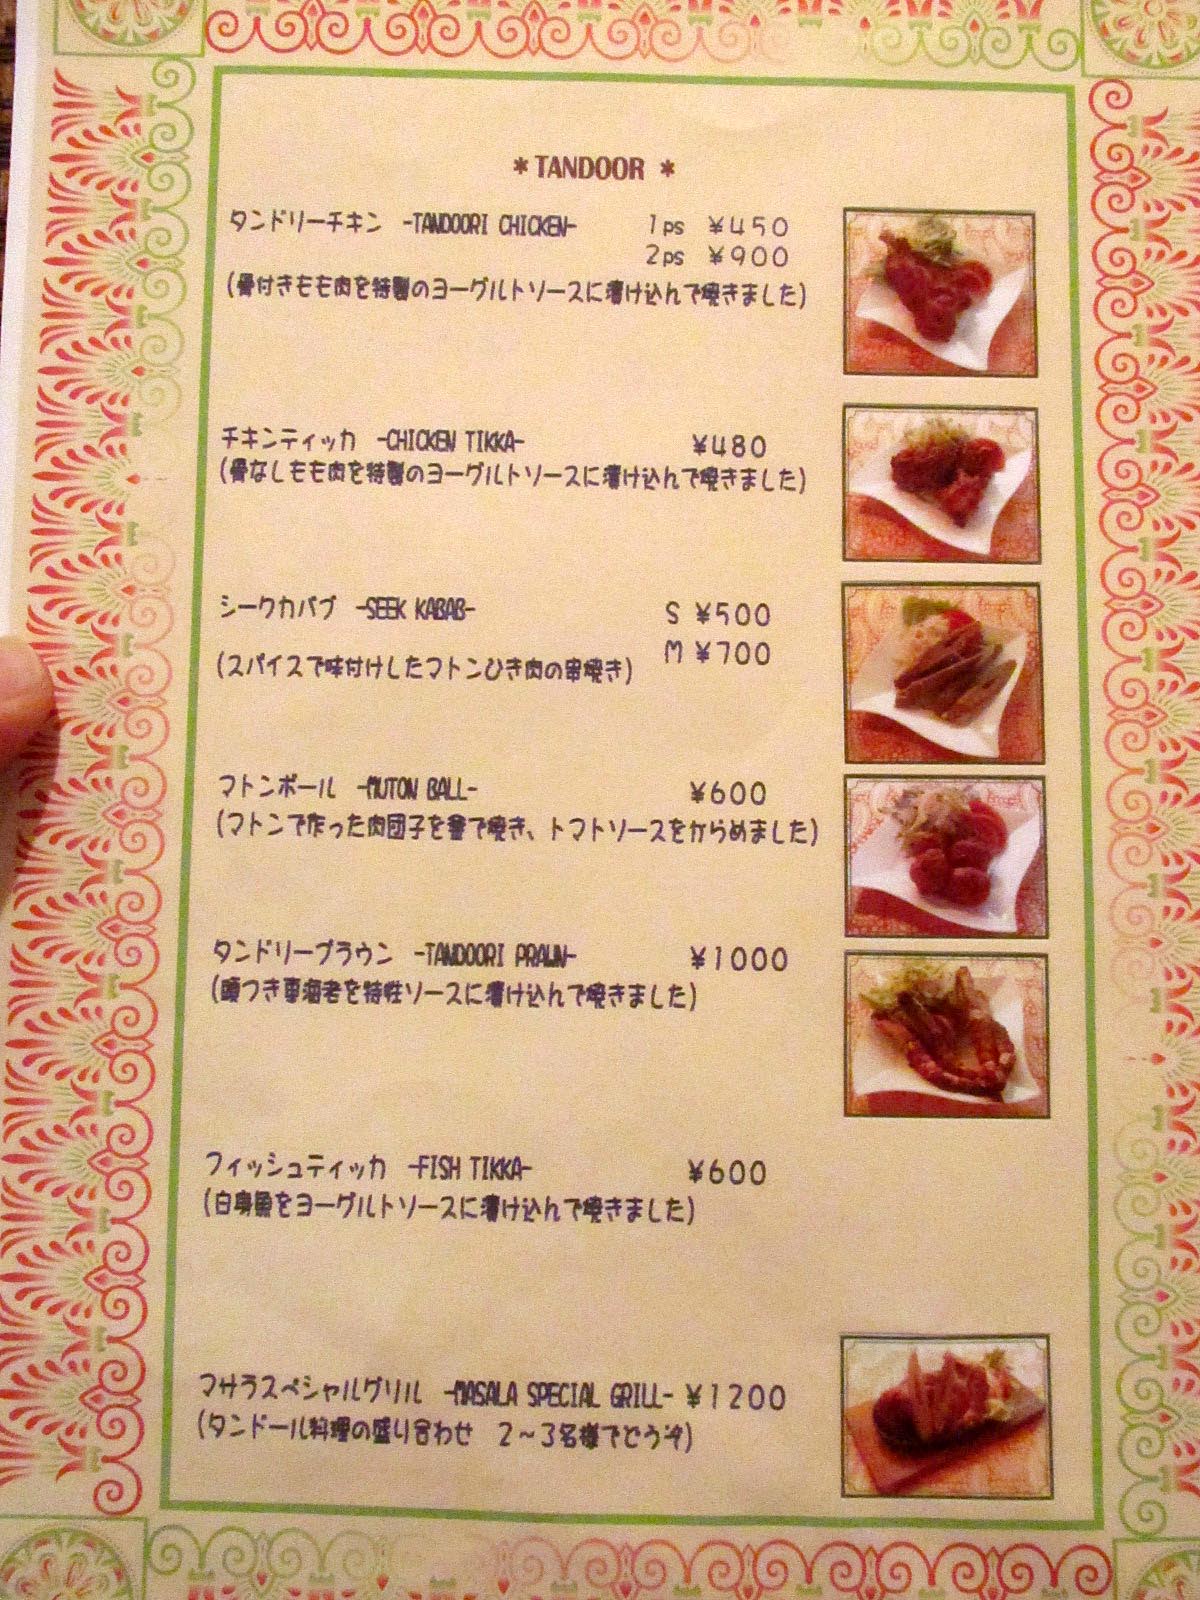 ＊TANDOOR＊
タンドリーチキン -TANDOORI CHICKEN- 1ps ¥450
2ps ¥900
(骨付きもも肉を特製のヨーグルトソースに漬け込んで焼きました)
チキンティッカ -CHICKEN TIKKA- ¥480
(骨なしもも肉を特製のヨーグルトソースに漬け込んで焼きました)
シークカバブ -SEEK KABAB- S ¥500
M ¥700
(スパイスで味付けしたマトンひき肉の串焼き)
マトンボール -MUTON BALL- ¥600
(マトンで作った肉団子を釜で焼き、トマトソースをからめました)
タンドリープラウン -TANDOORI PRAWN- ¥1000
(頭つき専海老を特性ソースに漬け込んで焼きました)
フィッシュティッカ -FISH TIKKA- ¥600
(白身魚をヨーグルトソースに漬け込んで焼きました)
マサラスペシャルグリル -MASALA SPECIAL GRILL- ¥1200
(タンドール料理の盛り合わせ 2～3名様でどうぞ)